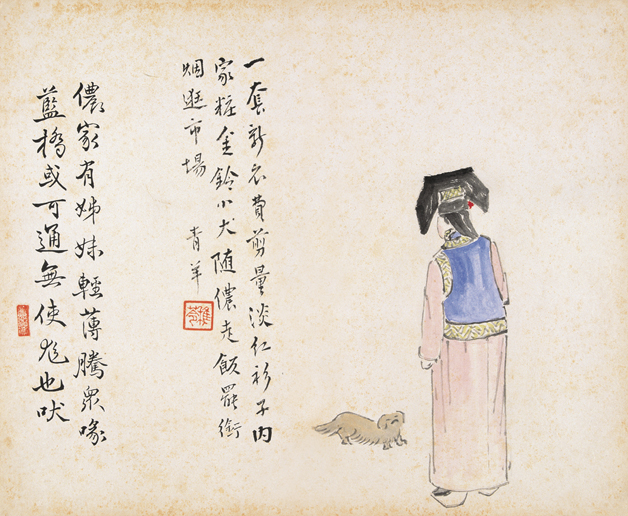 一套新衣費剪量淡紅衫子内
家粧金鈴小犬随儂走飯罷銜
烟逛市場
青羊
儂家有姊妹輕薄騰衆喙
藍橋或可通無使尨也吠